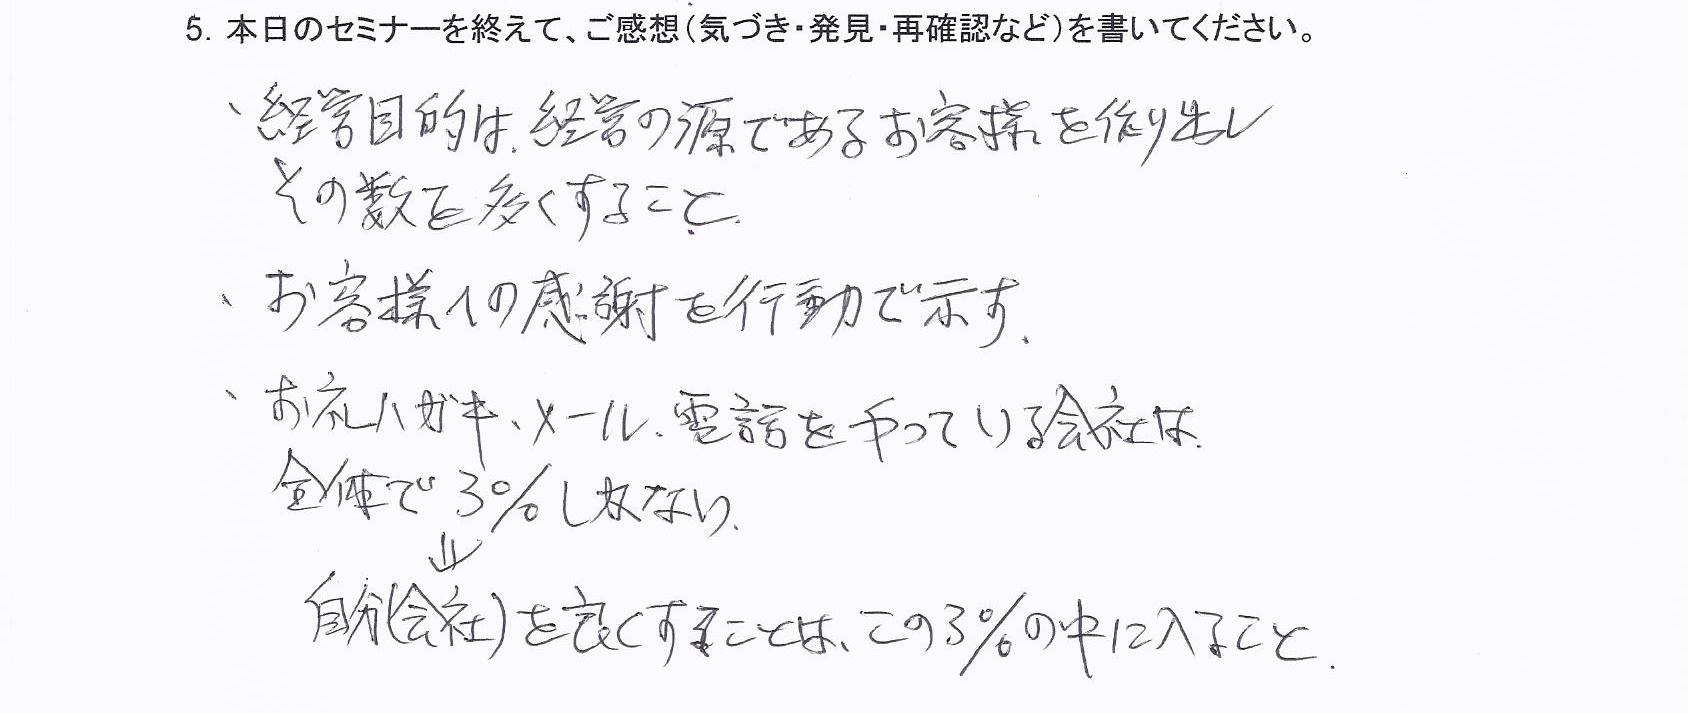 5. 本日のセミナーを終えて、ご感想(気づき・発見・再確認など)を書いてください。
、経営目的は、経営の源であるお客様を作り出し
その数を多くすること.
、お客様への感謝を行動で示す.
、お礼ハガキ、メール、電話をやっている会社は、
全体で3%しかない.
⇓
自分(会社)を良くすることは、この3%の中に入ること.